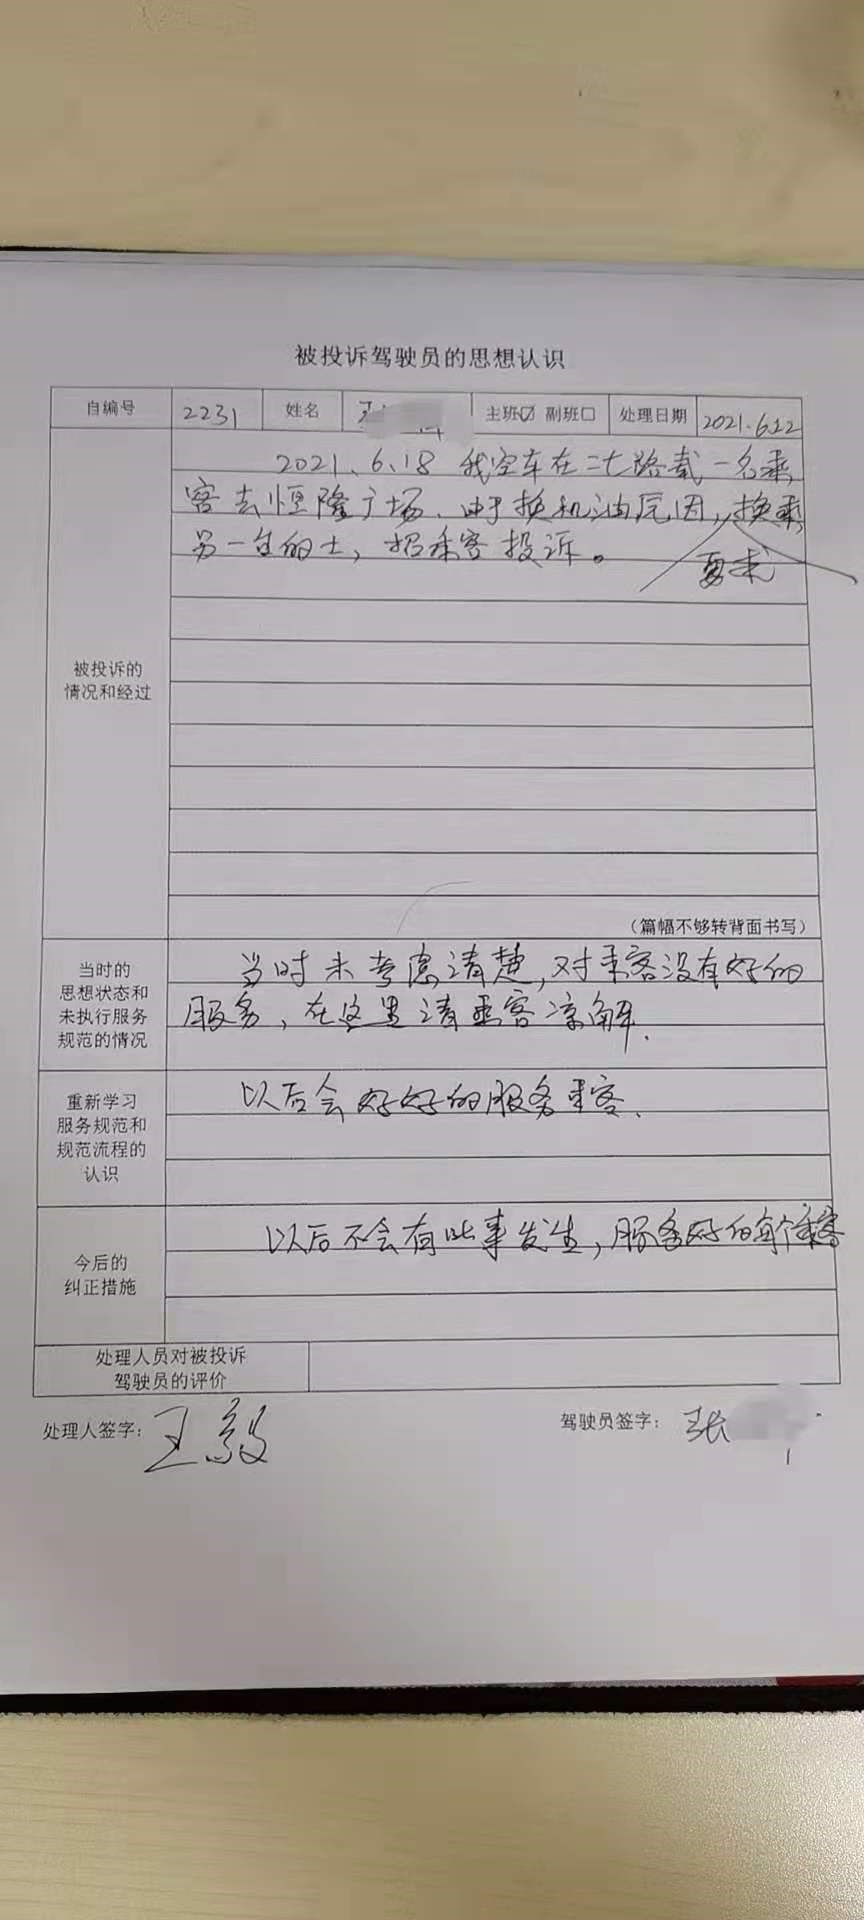 被投诉驾驶员的思想认识
自编号 2231 姓名 主班☑ 副班☐ 处理日期 2021.6.22
被投诉的
情况和经过
2021.6.18 我空车在二七路载一名乘
客去恒隆广场、由于换机油原因,换乘
要求
另一台的士,招乘客投诉。
(篇幅不够转背面书写)
当时的
思想状态和
未执行服务
规范的情况
当时未考虑清楚,对乘客没有好的
服务,在这里请乘客凉解.
重新学习
服务规范和
规范流程的
认识
以后会好好的服务乘客.
今后的
纠正措施
以后不会有此事发生,服务好的每个乘客
处理人员对被投诉
驾驶员的评价
处理人签字: 王毅
驾驶员签字: 张